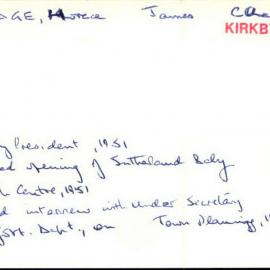 DGE, Horace James
KIRKB
y President, 1951
ed opening of Sutherland Baby
h Centre, 1951
d interview with Under Secretary
Govt. Dept., on Town Planning, 1